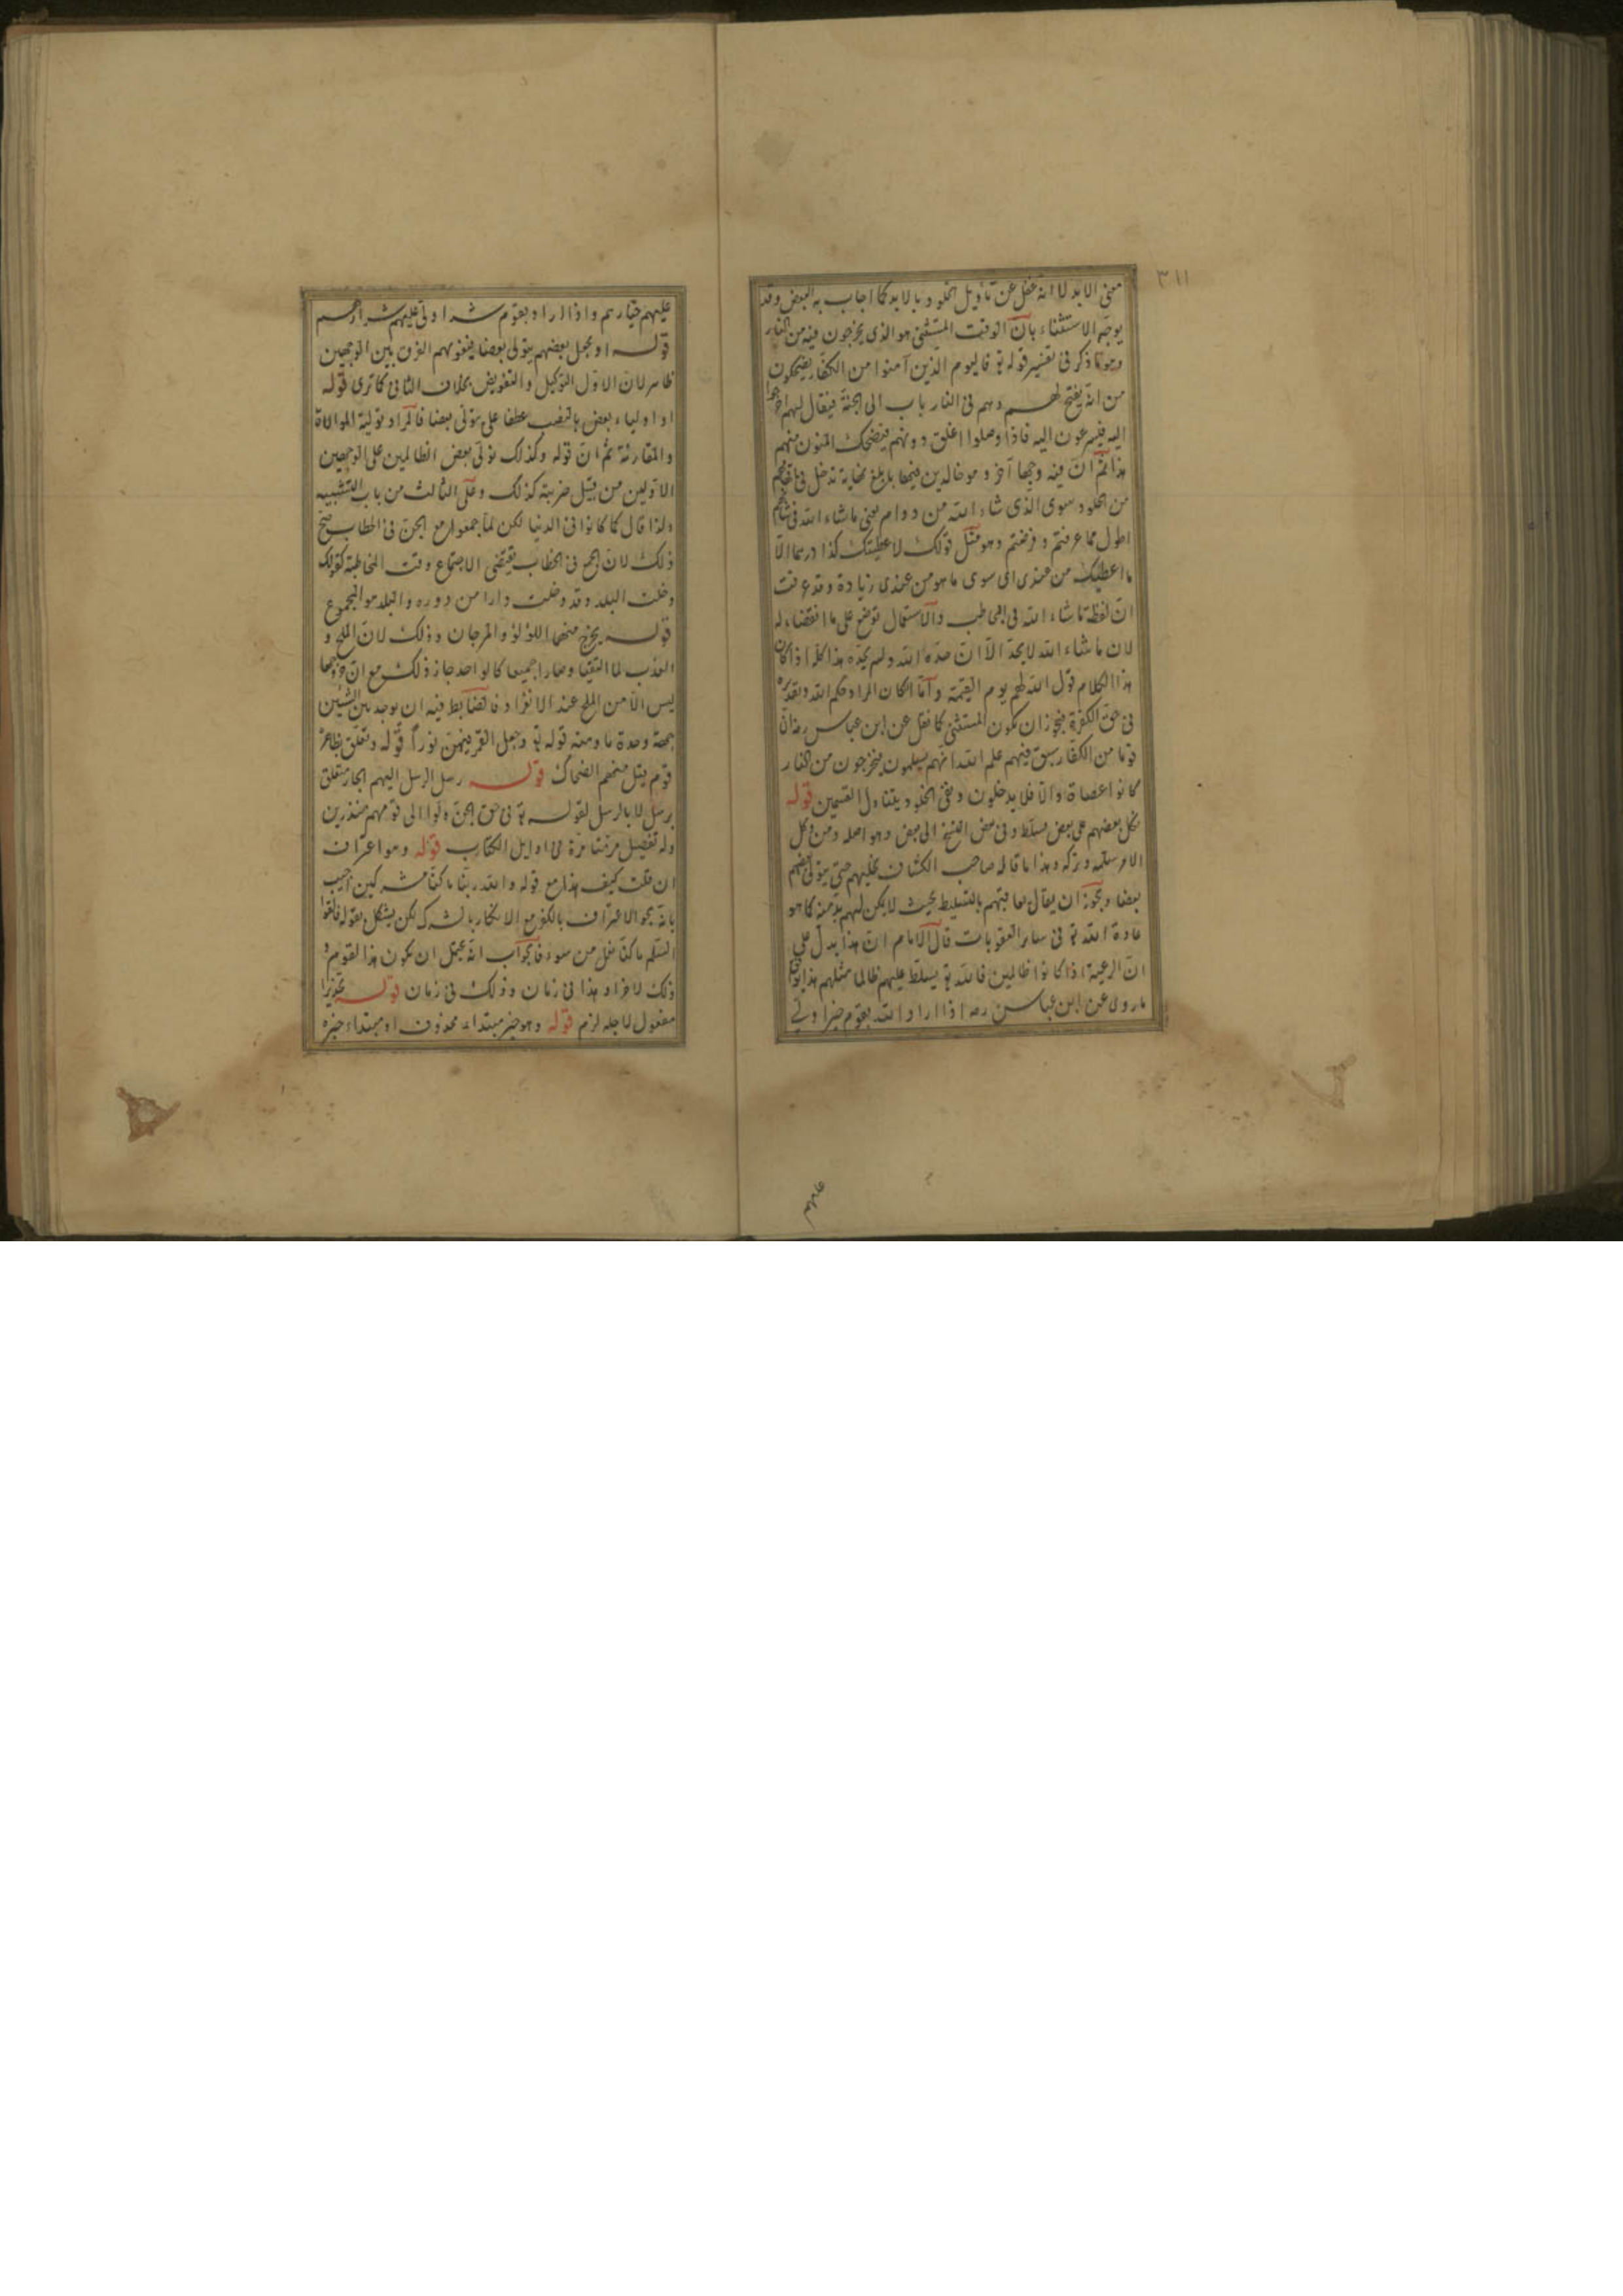 ٣١١
معنى الابد لا انه غفل عن تأويل الخلود بالابد كما اجاب به البعض وقد
يوجه الاستثناء بان الوقت المستثنى هو الذى يخرجون فيه من النار
وهو ما ذكر فى تفسير قوله تع فاليوم الذين آمنوا من الكفار يضحكون
من انه يفتح لهم وهم فى النار باب الى الجنة فيقال لهم اخرجوا
اليه فيسرعون اليه فاذا وصلوا اغلق دونهم فيضحك المؤمنون منهم
هذا ثم ان فيه وجها آخر وهو خالدين فيها بابلغ نهاية تدخل فى
من الخلود سوى الذى شاء الله من دوام يعنى ما شاء الله فى
اطول مما عرفتم وفرضتم وهو مثل قولك لاعطيتك كذا درهما الا
ما اعطيك من عندى اى سوى ما هو من عندى زيادة وقد عرفت
ان لفظة ما شاء الله فى والاستعمال توضع على ما له
لان ما شاء الله لا يحد الا ان حده الله ولم يحده هذا كله اذا كان
هذا الكلام قول الله لهم يوم القيمة واما ان كان المراد حكم الله وتقديره
فى حق الكفرة فيجوز ان يكون المستثنى كما نقل عن ابن عباس رضه ان
قوما من الكفار سبق فيهم علم الله انهم يسلمون فيخرجون من النار
كانوا عصاة والا فلا يدخلون ونفى الخلود يتناول القسمين قوله
نكل بعضهم على بعض مسلط وفى بعض النسخ الى بعض وهو اصله ومن وكل
الامر سلمه وتركه وهذا ما قاله صاحب الكشاف نخليهم حتى يتولى بعضهم
بعضا ويجوز ان يقال معاقبتهم بالتسليط بحيث لا يكن لهم بد منه كما هو
عادة الله تع فى سائر العقوبات قال الامام ان هذا يدل على
ان الرعية اذا كانوا ظالمين فالله تع يسلط عليهم ظالما مثلهم هذا
ما روى عن ابن عباس رضه اذا اراد الله بقوم خيرا ولى
عليهم خيارهم واذا اراد بقوم شرا ولى عليهم شرارهم
قوله او نجعل بعضهم يتولى بعضا فيغويهم الفرق بين الوجهين
ظاهر لان الاول التوكيل والتفويض بخلاف الثانى كما ترى قوله
او اولياء بعض بالنصب عطفا على يتولى بعضا فالمراد بتولية الموالاة
والمقارنة ثم ان قوله وكذلك نولى بعض الظالمين على الوجهين
الاولين من قبيل ضربته كذلك وعلى الثالث من باب التشبيه
ولذا قال كما كانوا فى الدنيا لكن لما جمعوا مع الجن فى الخطاب صح
ذلك لان الجمع فى الخطاب يقتضى الاجتماع وقت المخاطبة كقولك
دخلت البلد وقد دخلت دارا من دوره والبلد هو المجموع
قوله يخرج منهما اللؤلؤ والمرجان وذلك لان الملح و
العذب لما التقيا وصارا جميعا كالواحد جاز ذلك مع ان خروجهما
ليس الا من الملح عند الانفراد فالضابط فيه ان يوجد بين الشيئين
جهة وحدة ما ومنه قوله تع وجعل القمر فيهن نورا قوله وتعلق بظاهره
قوم مثل منهم الضحاك قوله رسل الرسل اليهم الجار متعلق
برسل لا بالرسل لقوله تع فى حق الجن ولوا الى قومهم منذرين
وله تفصيل مر منا مرة فى اوايل الكتاب قوله وهو اعتراف
ان قلت كيف هذا مع قوله والله ربنا ما كنا مشركين اجيب
بانه نحو الاعتراف بالكفر مع الانكار بالشرك لكن يشكل بقوله فالقوا
السلم ما كنا نعمل من سوء فالجواب انه يحتمل ان يكون هذا لقوم و
ذلك لاخر او هذا فى زمان وذلك فى زمان قوله تحذيرا
مفعول لاجله لزم قوله وهو خبر مبتداء محذوف او مبتداء خبره